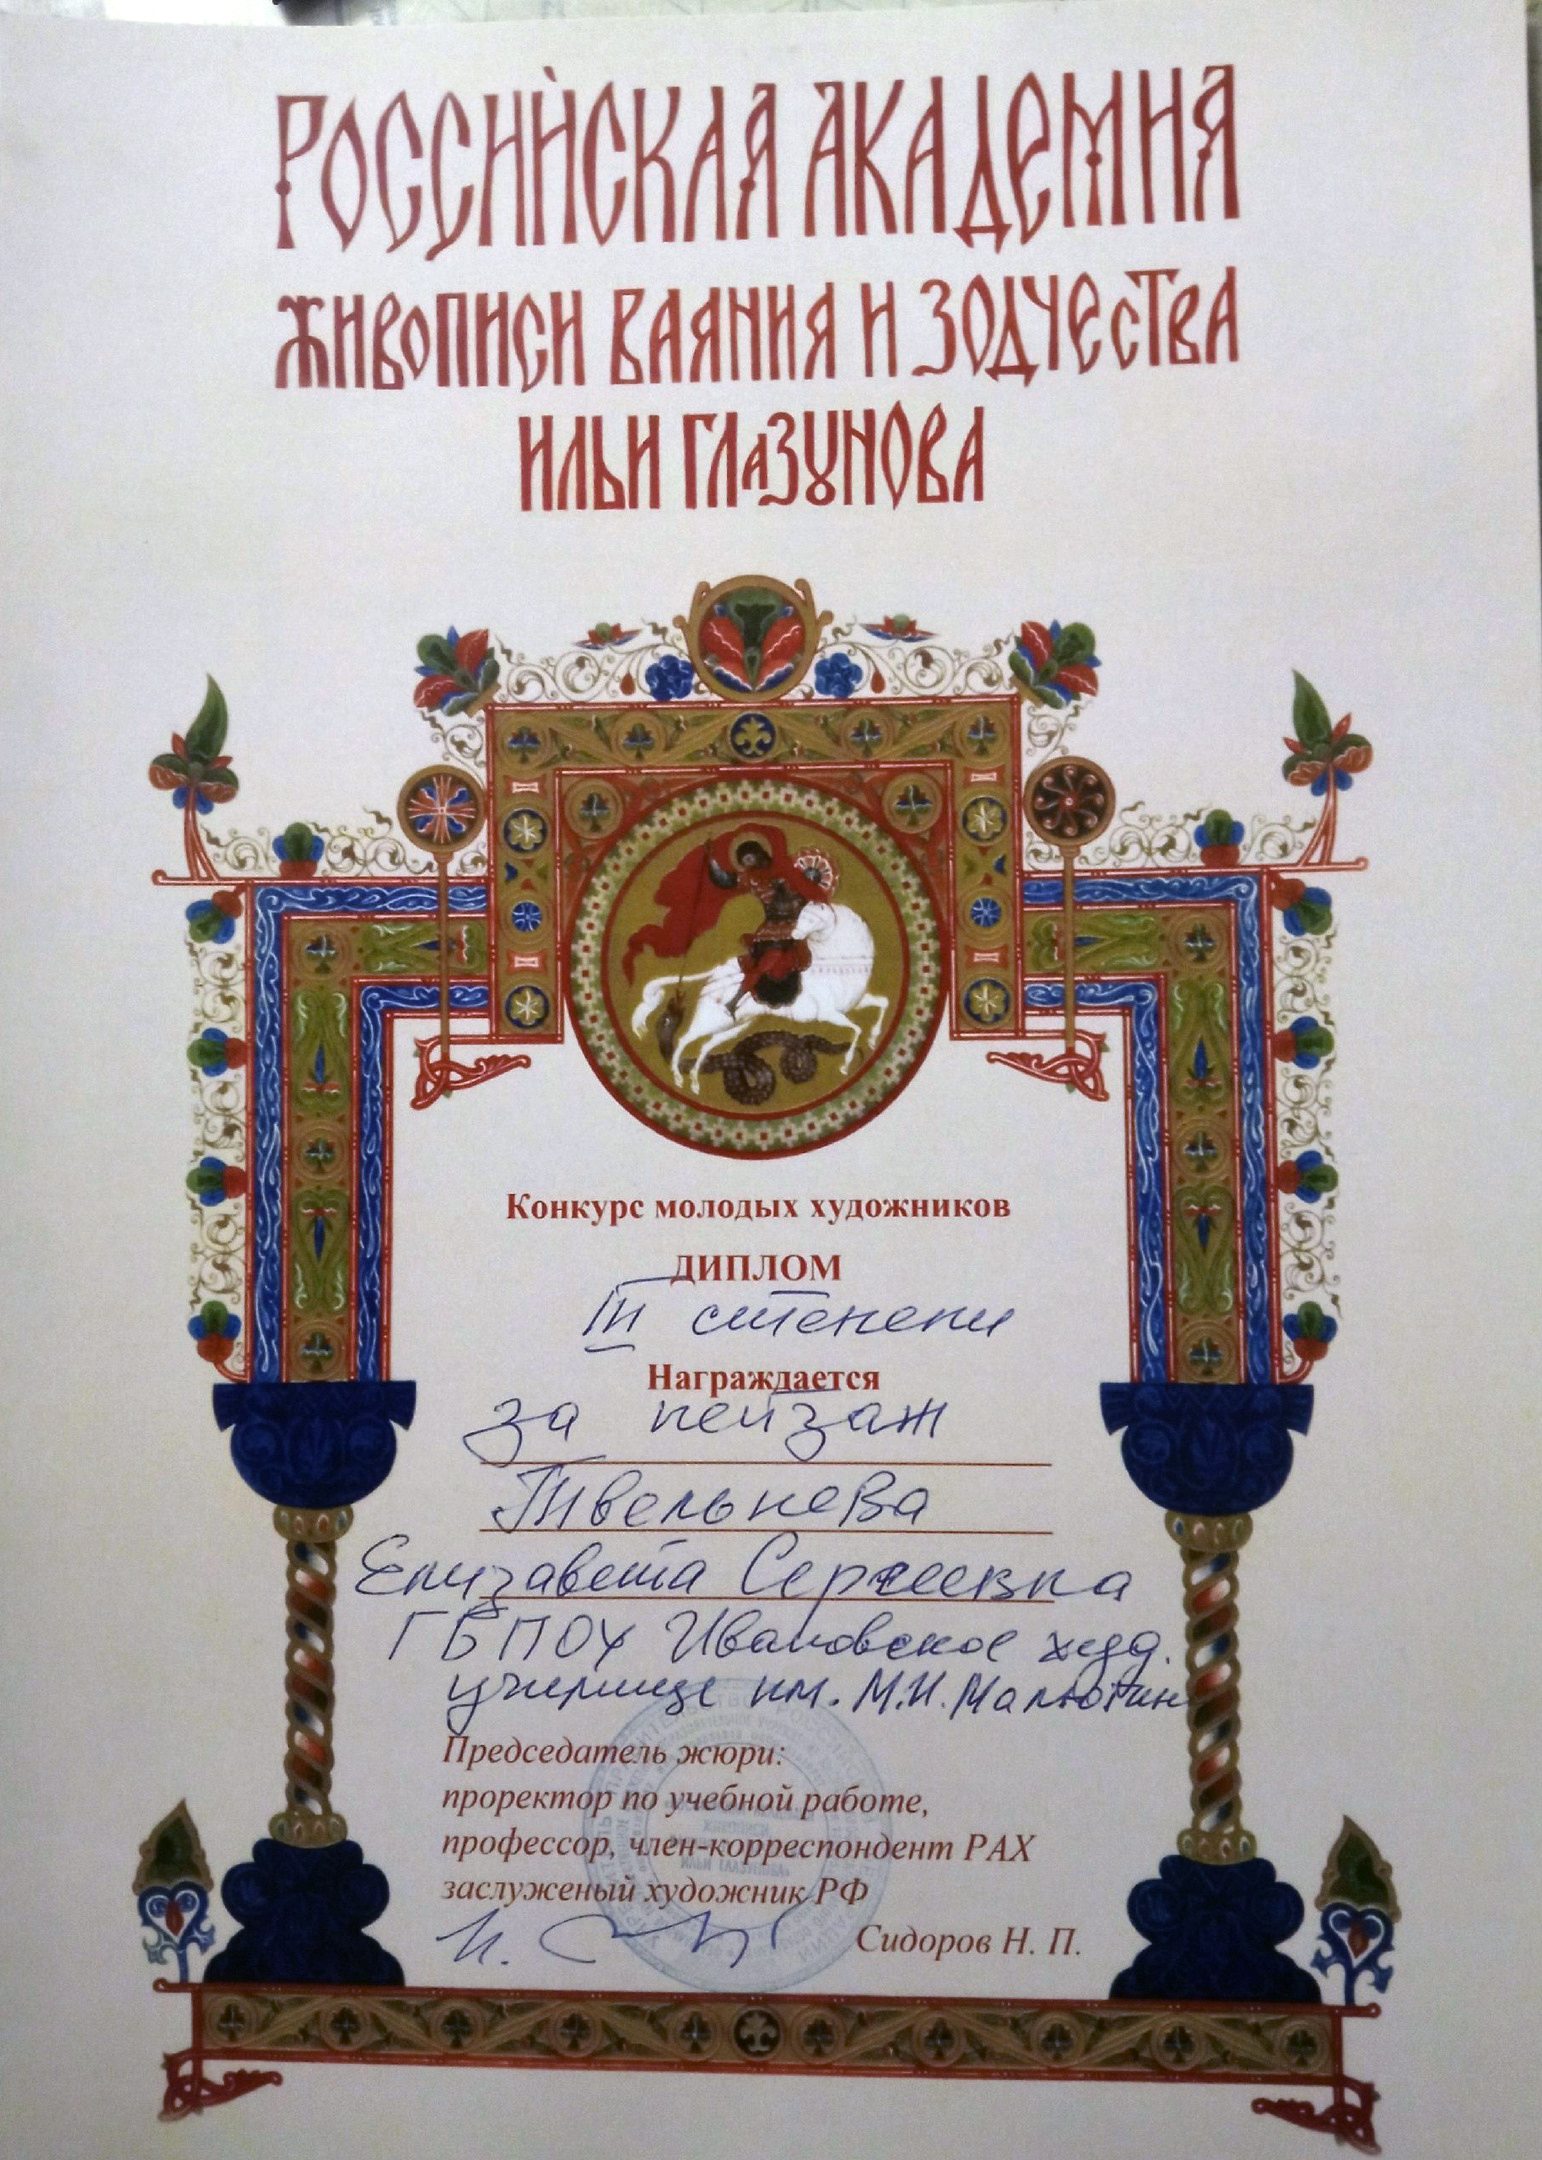 РОССИЙСКАЯ АКАДЕМИЯ
ЖИВОПИСИ ВАЯНИЯ И ЗОДЧЕСТВА
ИЛЬИ ГЛАЗУНОВА
Конкурс молодых художников
ДИПЛОМ
III степени
Награждается
за пейзаж
Твельнева
Елизавета Сергеевна
ГБПОУ Ивановское худ.
училище им. М.И. Малютин
Председатель жюри:
проректор по учебной работе,
профессор, член-корреспондент РАХ
заслуженый художник РФ
Сидоров Н. П.
ЖИВОПИСИ
ИЛЬИ ГЛАЗУНОВА